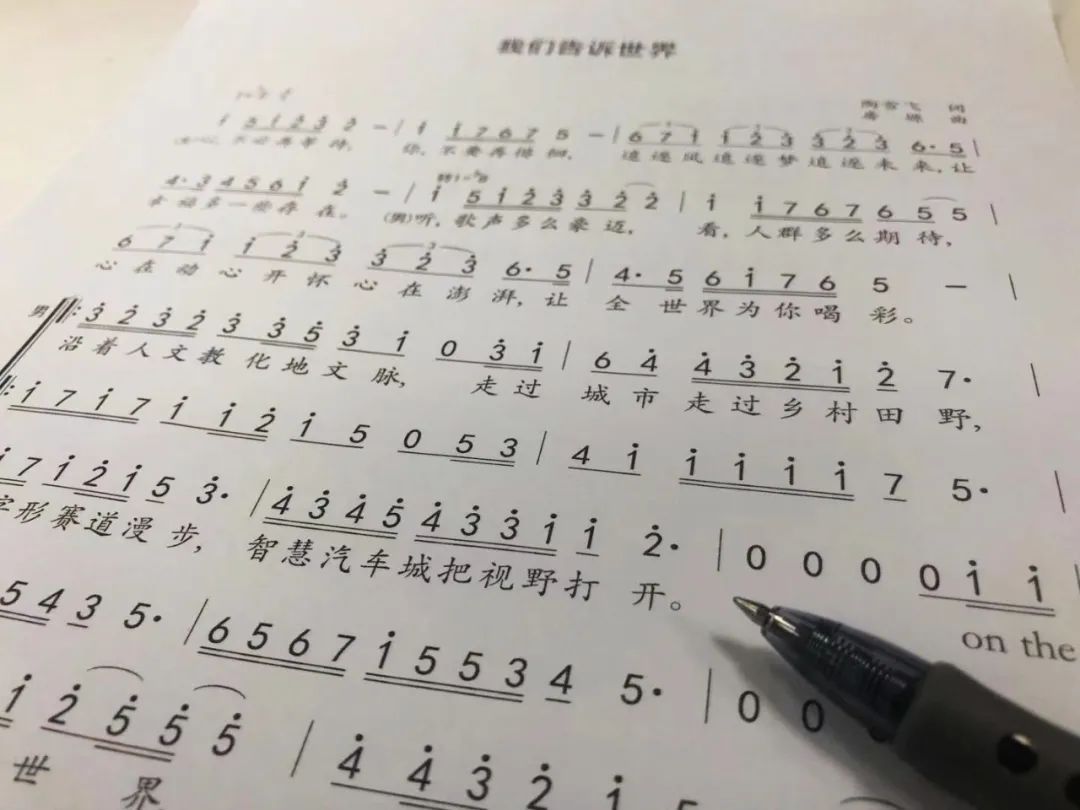 我们告诉世界
词
曲
1 5 1 2 3 2 – | 1 1 7 6 7 5 – | 6 7 1 1 2 3 3 2 3 6· 5 |
你,不要再徘徊, 追逐风追逐梦追逐未来,让
4· 3 4 5 6 1 2 – | 1 5 1 2 3 3 2 2 | 1 1 7 6 7 6 5 5 |
多一些存在。 (男)听,歌声多么豪迈, 看,人群多么期待,
6 7 1 1 2 3 3 2 3 6· 5 | 4· 5 6 1 7 6 5 – |
心在动心开怀心在澎湃,让 全世界为你喝彩。
男 3 2 3 2 3 3 5 3 1 0 3 1 | 6 4 4 3 2 1 2 7· |
沿着人文教化地文脉, 走过城市走过乡村田野,
1 7 1 7 1 1 2 1 5 0 5 3 | 4 1 1 1 1 1 7 5· |
1 7 1 2 1 5 3· | 4 3 4 5 4 3 3 1 1 2· | 0 0 0 0 1 1
字形赛道漫步, 智慧汽车城把视野打开。 on the
5 4 3 5· | 6 5 6 7 1 5 5 3 4 5· | 0 0
1 2 5 5 5 | 4 4 3 2 1 5
世界